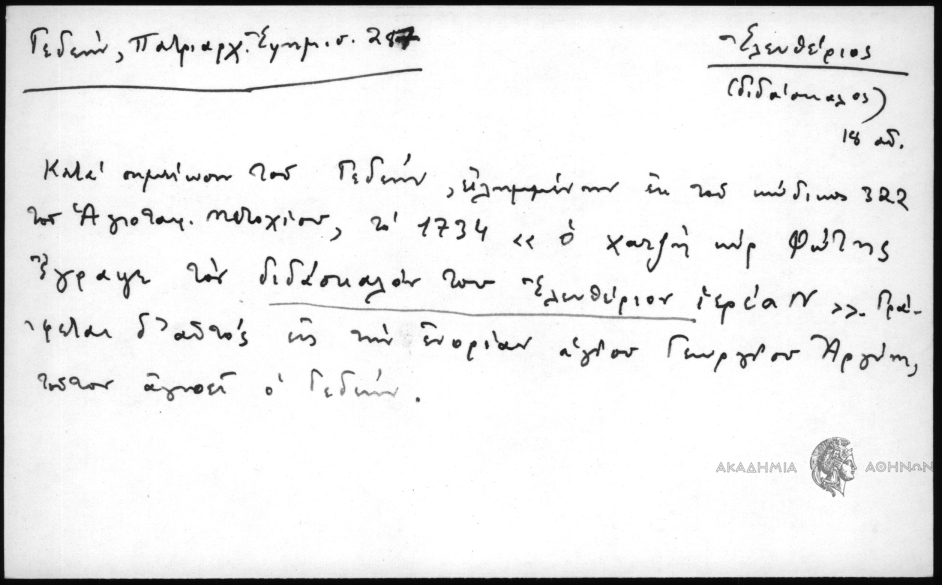 Γεδεών, Πατριαρχ. Ἐφημερ. 287
Ἐλευθέριος
(διδάσκαλος)
18 αἰ.
Κατά σημείωσιν τοῦ Γεδεών, εἰλημμένην ἐκ τοῦ κώδικος 322
τοῦ Ἁγιοταφ. Μετοχίου, τό 1734 « ὁ χατζῆ κύρ Φώτης
ἔγραψε τόν διδάσκαλόν του Ἐλευθέριον ἱερέαν ». Γρά-
φεται δ' αὐτός εἰς τήν ἐνορίαν ἁγίου Γεωργίου Ἀργύρη,
τοῦτον ἀγνοεῖ ὁ Γεδεών.
ΑΚΑΔΗΜΙΑ ΑΘΗΝΩΝ